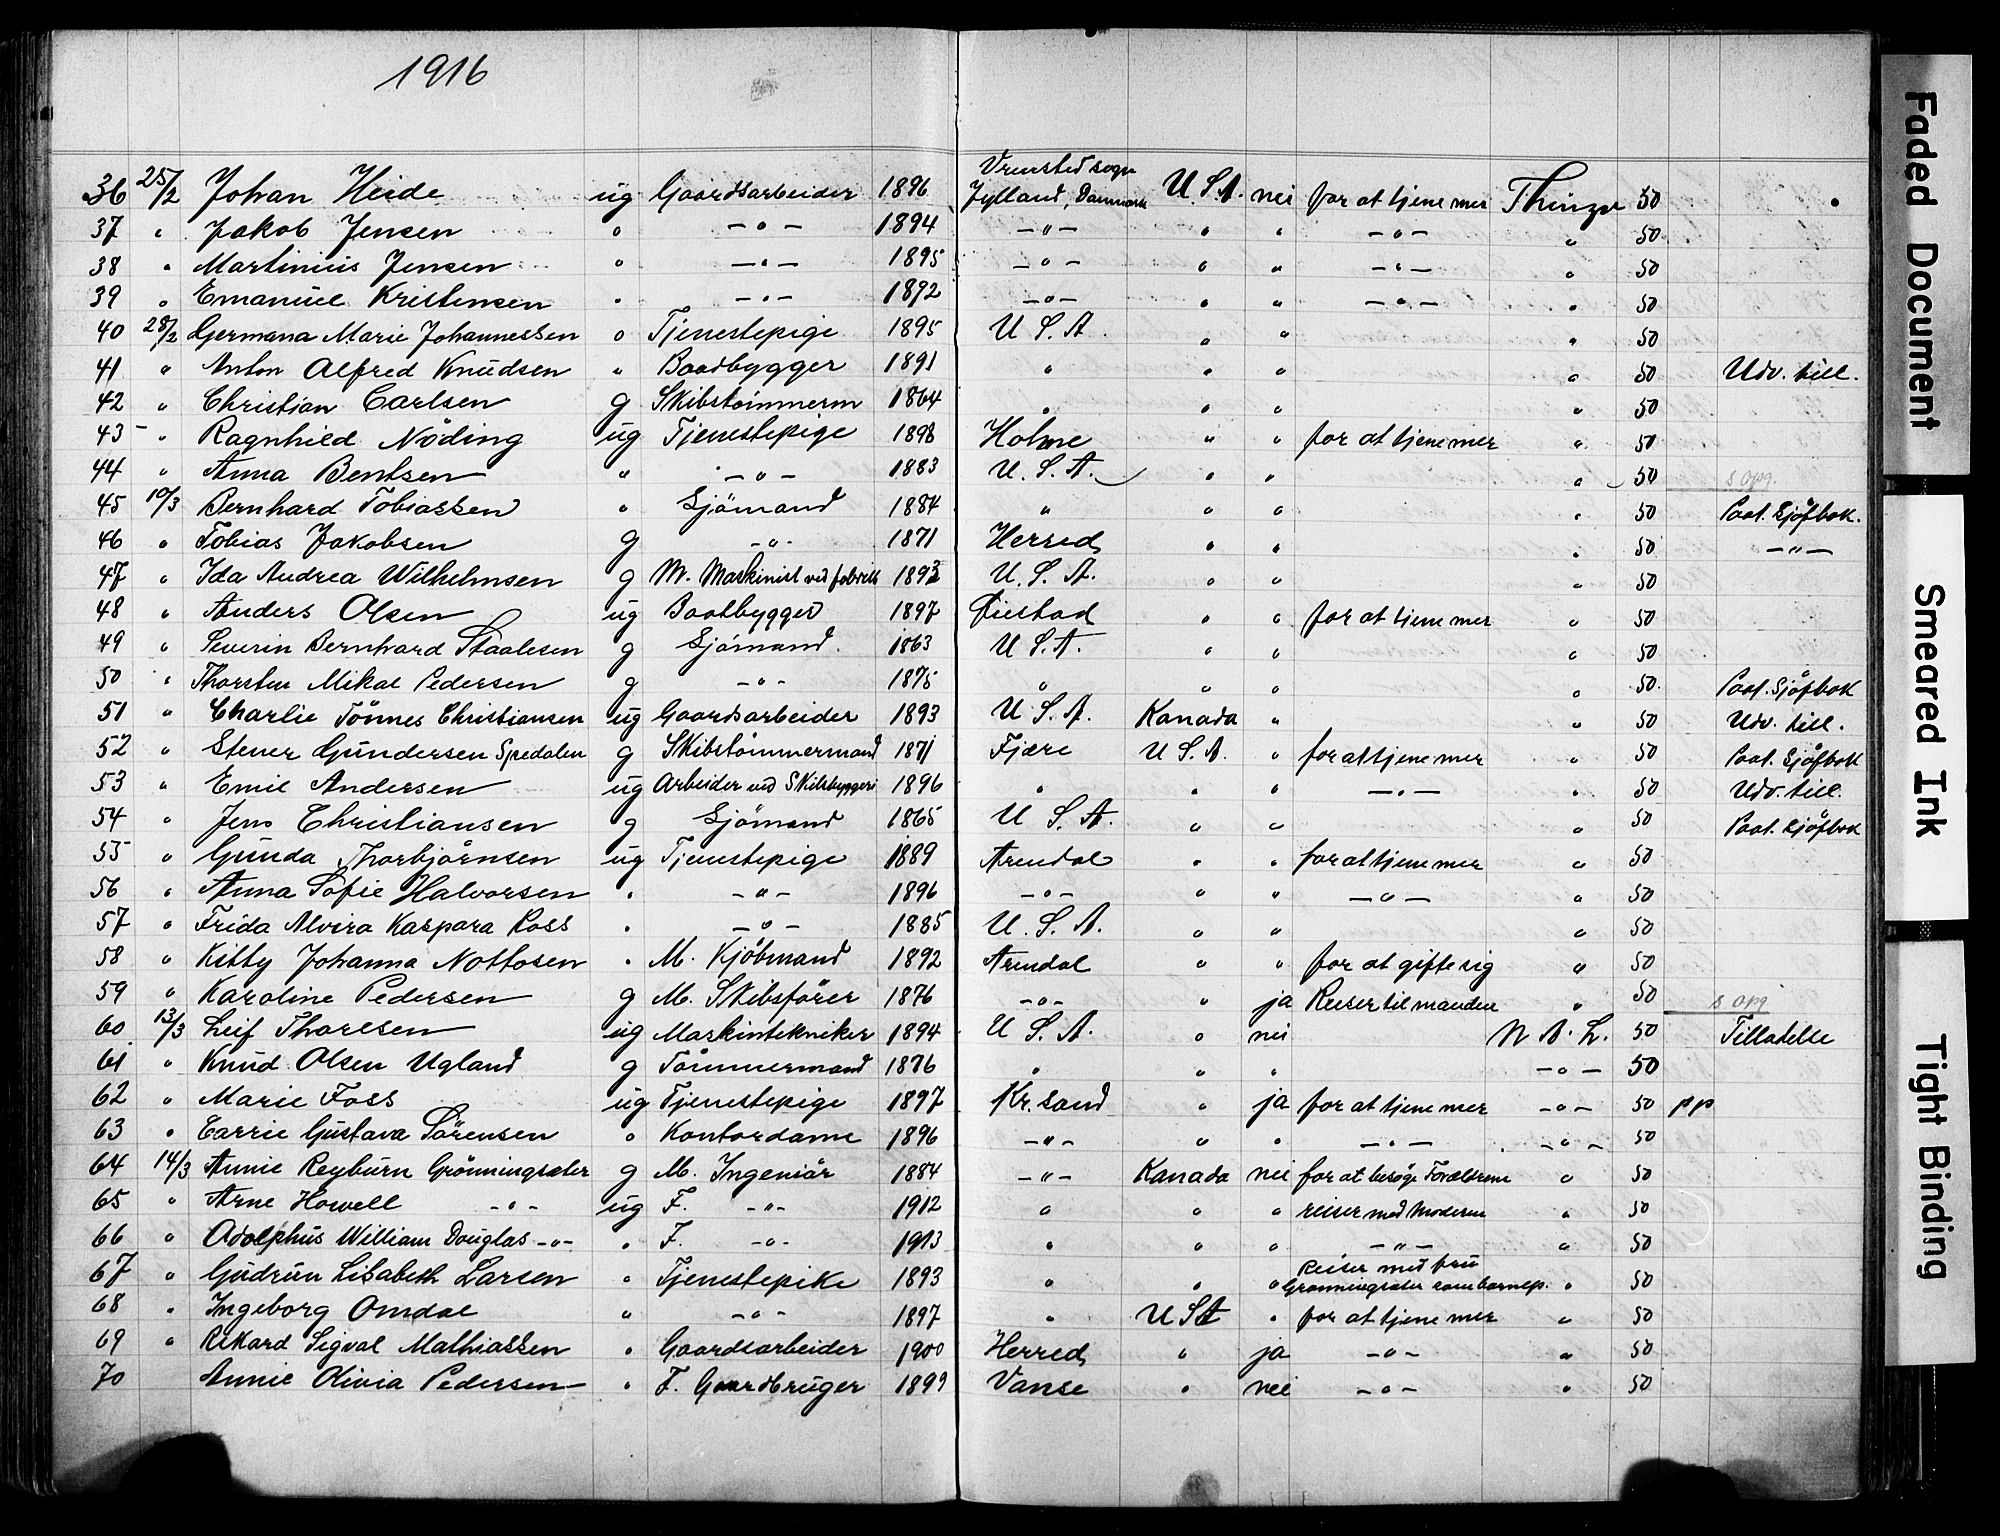 1916
36 25/2 Johan Heide ug Gaardsarbeider 1896 Vrensted sogn Jylland, Danmark U.S.A. nei for at tjene mer Thingv 50
37 " Jakob Jensen " —"— 1894 —"— " " —"— " 50
38 " Martinius Jensen " —"— 1895 —"— " " —"— " 50
39 " Emanuel Kristensen " —"— 1892 —"— " " —"— " 50
40 28/2 Germana Marie Johannessen " Tjenestepige 1895 U.S.A. " " " 50
41 " Anton Alfred Knudsen " Baadbygger 1891 " " " " 50 Udv. till.
42 " Christian Carlsen g Skibstömmerm 1864 " " " " 50
43 " Ragnhild Nöding ug Tjenestepige 1898 Holme " " for at tjene mer " 50
44 " Anna Bentsen " —"— 1883 U.S.A. " " " 50 s opg.
45 10/3 Bernhard Tobiassen " Sjömand 1884 " " " " 50 Paat. Sjöfbok.
46 " Tobias Jakobsen g —"— 1871 Herred " " " 50 —"—
47 " Ida Andrea Wilhelmsen g M. Maskinist ved fabrikk 1893 U.S.A. " " " 50
48 " Anders Olsen ug Baatbygger 1897 Øiestad " " for at tjene mer " 50
49 " Severin Bernhard Staalesen g Sjömand. 1863 U.S.A. " " " 50
50 " Thorsten Mikal Pedersen g —"— 1875 " " " " 50. Paat. Sjöfbok
51 " Charlie Tönnes Christiansen ug Gaardsarbeider 1893 U.S.A. Kanada " " 50 Udv. till.
52 " Stener Gundersen Spedalen g Skibstömmermand 1871 Fjære U.S.A. " for at tjene mer " 50 Paat. Sjöfbok
53 " Emil Andersen ug Arbeider ved Skibsbyggeri 1896 " " " —"— " 50 Udv. till.
54 " Jens Christiansen g Sjömand 1865 U.S.A. " " " 50 Paat. Sjöfbok
55 " Gunda Thorbjörnsen ug Tjenestepige 1889 Arendal " " for at tjene mer " 50
56 " Anna Sofie Halvorsen " —"— 1896 —"— " " —"— " 50
57 " Frida Alvira Kaspara Ross " —"— 1885 U.S.A. " " " 50
58 " Kitty Johanna Nottosen " M. Kjöbmand 1892 Arendal " " for at gifte sig " 50
59 " Karoline Pedersen g M. Skibsförer 1876 —"— " ja Reiser til manden " 50 s opg
60 13/3 Leif Thorsen ug Maskintekniker 1894 U.S.A. " nei N.A.L. 50 Tilladelse
61 " Knud Olsen Ugland g Tömmermand 1876 " " " —"— 50
62 " Marie Foss ug Tjenestepige 1897 Kr.sand " ja for at tjene mer —"— 50 pp
63 " Carrie Gustava Sörensen " Kontordame 1896 —"— " " —"— —"— 50
64 14/3 Annie Reyburn Grönningsæter g M. Ingeniör 1884 —"— Kanada nei for at besöge Forældrene " 50
65 " Arne Howell —"— ug F. —"— 1912 " " " reiser med Moderen " 50
66 " Adolphus William Douglas —"— " F. —"— 1913 " " " —"— " 50
67 " Gudrun Lisabeth Larsen " Tjenestepike 1893 " " " Reiser med fru Grønningsæter som barnep. " 50
68 " Ingeborg Omdal " —"— 1897 " USA " for at tjene mer " 50
69 " Rikard Sigval Mathiassen " Gaardsarbeider 1900 Herred " ja —"— " 50
70 Annie Olivia Pedersen " F. Gaardbruger 1899 Vanse " nei —"— " 50
Faded Document
Smeared Ink
Tight Binding